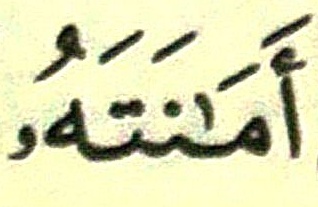 أَمَٰنَتَهُۥ